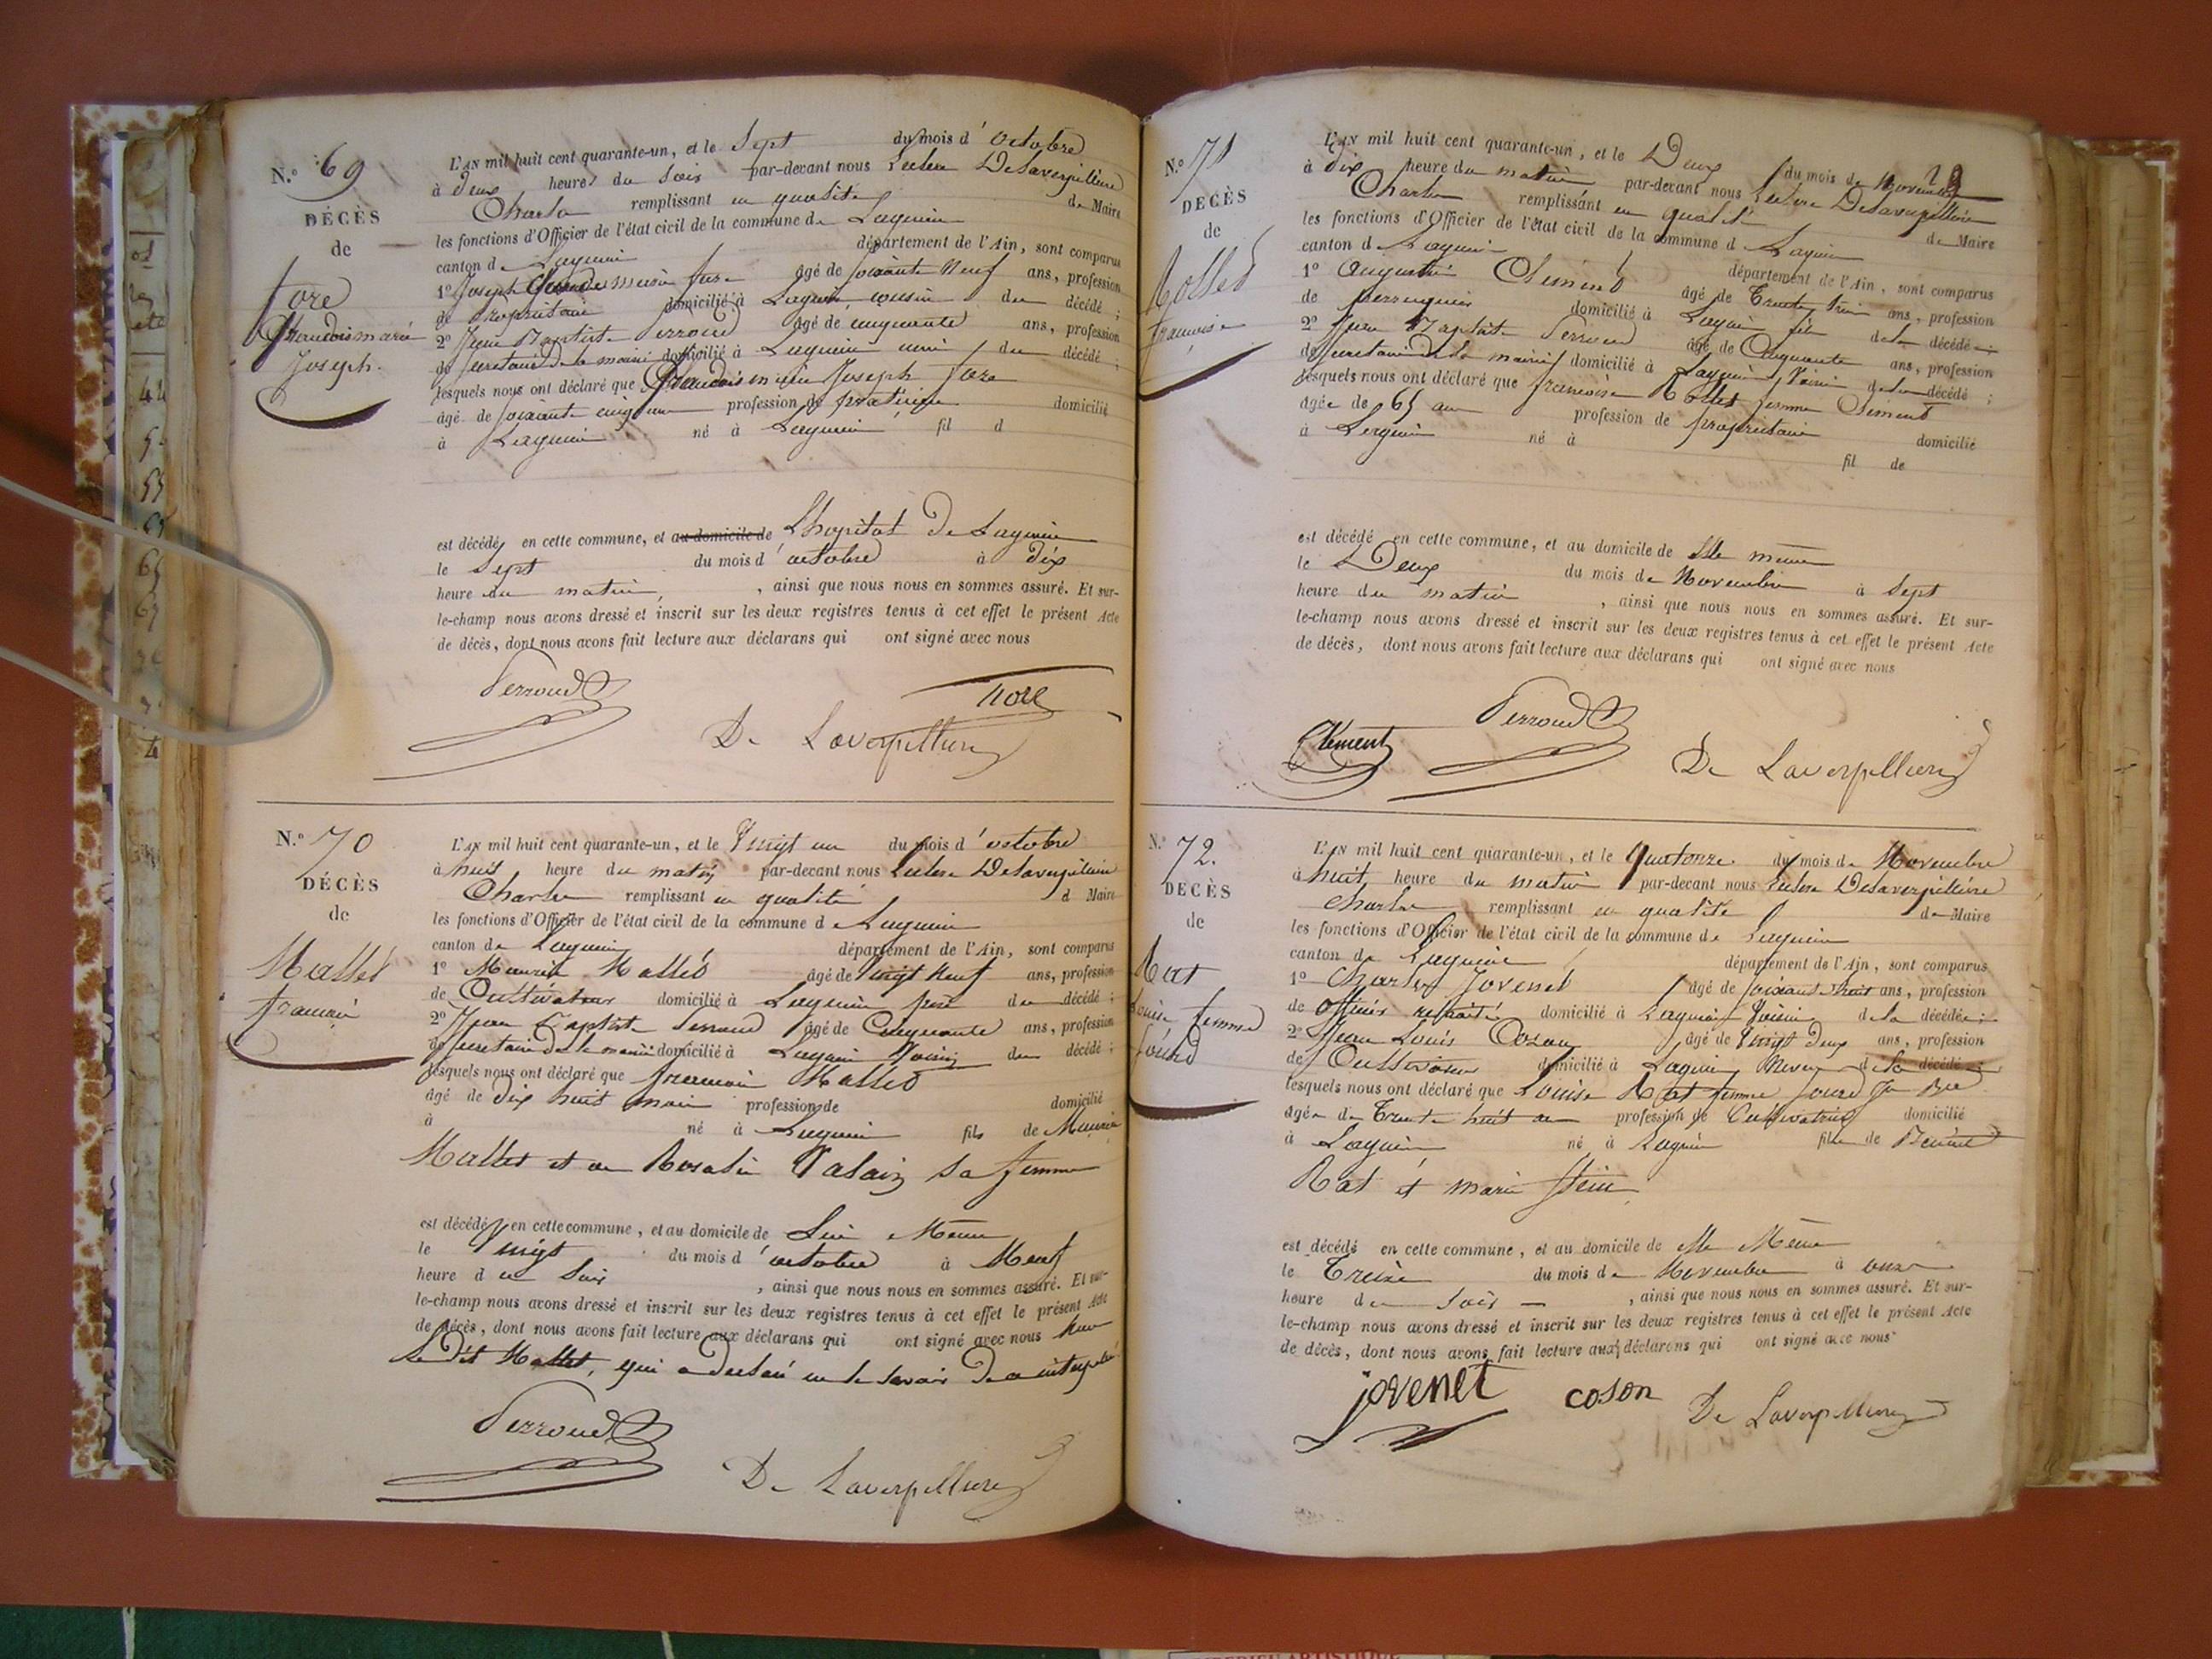 N.º 69
DÉCÈS
de
fore
Joseph.
L'AN mil huit cent quarante-un, et le Sept du mois d'octobre
à deux heures du soir par-devant nous Leclerc Delaverpillière
Charles remplissant en qualité de Maire
les fonctions d'Officier de l'état civil de la commune de Lagnieu
canton de Lagnieu département de l'Ain, sont comparus
1º Joseph marie fore âgé de soixante neuf ans, profession
de Propriétaire domicilié à Lagnieu cousin du décédé ;
2º Jean Baptiste Perroud âgé de cinquante ans, profession
de secretaire de la mairie domicilié à Lagnieu ami du décédé ;
lesquels nous ont déclaré que Joseph fore
âgé de soixante cinq ans profession de praticien domicilié
à Lagnieu né à Lagnieu fil d
est décédé en cette commune, et au domicile de L'hopital de Lagnieu
le Sept du mois d'octobre à dix
heure du matin, , ainsi que nous nous en sommes assuré. Et sur-
le-champ nous avons dressé et inscrit sur les deux registres tenus à cet effet le présent Acte
de décès, dont nous avons fait lecture aux déclarans qui ont signé avec nous
Perroud fore
De Laverpilliere
N.º 70
DÉCÈS
de
Mallet
francois
L'AN mil huit cent quarante-un, et le Vingt un du mois d'octobre
à huit heure du matin par-devant nous Leclerc Delaverpillière
Charles remplissant en qualité d Maire
les fonctions d'Officier de l'état civil de la commune de Lagnieu
canton de Lagnieu département de l'Ain, sont comparus
1º Maurice Mallet âgé de Vingt neuf ans, profession
de Cultivateur domicilié à Lagnieu père du décédé ;
2º Jean Baptiste Perroud âgé de Cinquante ans, profession
de secretaire de la mairie domicilié à Lagnieu Voisin du décédé ;
lesquels nous ont déclaré que francois Mallet
âgé de dix huit mois profession de domicilié
à né à Lagnieu fils de Maurice
Mallet et de Rosalie sa femme
est décédé en cette commune, et au domicile de Lui Même
le Vingt du mois d'octobre à Neuf
heure du Soir , ainsi que nous nous en sommes assuré. Et sur-
le-champ nous avons dressé et inscrit sur les deux registres tenus à cet effet le présent Acte
de décès, dont nous avons fait lecture aux déclarans qui ont signé avec nous non
le dit Mallet, qui a declaré ne le savoir de ce interpellé
Perroud
De Laverpilliere
N.º 71
DÉCÈS
de
Rollet
francoise
L'AN mil huit cent quarante-un, et le Deux du mois de Novembre
à dix heure du matin par-devant nous Leclerc Delaverpillière
Charles remplissant en qualité de Maire
les fonctions d'Officier de l'état civil de la commune d Lagnieu
canton de Lagnieu département de l'Ain, sont comparus
1º Augustin Clément âgé de Trente trois ans, profession
de perruquier domicilié à Lagnieu fils de la décédé ;
2º Jean Baptiste Perroud âgé de Cinquante ans, profession
de secretaire de la mairie domicilié à Lagnieu Voisin de la décédé ;
lesquels nous ont déclaré que francoise Rollet femme Clément
âgée de 65 ans profession de propriétaire domicilié
à Lagnieu né à fil de
est décédé en cette commune, et au domicile de Elle même
le Deux du mois de Novembre à Sept
heure du matin , ainsi que nous nous en sommes assuré. Et sur-
le-champ nous avons dressé et inscrit sur les deux registres tenus à cet effet le présent Acte
de décès, dont nous avons fait lecture aux déclarans qui ont signé avec nous
Clement Perroud
De Laverpilliere
N.º 72.
DÉCÈS
de
Rat
Louise femme
L'AN mil huit cent quarante-un, et le Quatorze du mois de Novembre
à huit heure du matin par-devant nous Leclerc Delaverpillière
Charles remplissant en qualité de Maire
les fonctions d'Officier de l'état civil de la commune de Lagnieu
canton de Lagnieu département de l'Ain, sont comparus
1º Charles Jovenet âgé de soixante huit ans, profession
de officier retraité domicilié à Lagnieu Voisin de la décédée ;
2º Jean Louis Coson âgé de Vingt Deux ans, profession
de Cultivateur domicilié à Lagnieu Neveu de la décédé ;
lesquels nous ont déclaré que Louise Rat femme
âgée de Trente huit ans profession de Cultivatrice domicilié
à Lagnieu né à Lagnieu fille de Benoit
Rat et marie
est décédé en cette commune, et au domicile de Elle Même
le Treize du mois de Novembre à onze
heure du Soir , ainsi que nous nous en sommes assuré. Et sur-
le-champ nous avons dressé et inscrit sur les deux registres tenus à cet effet le présent Acte
de décès, dont nous avons fait lecture aux déclarans qui ont signé avec nous
jovenet coson De Laverpilliere